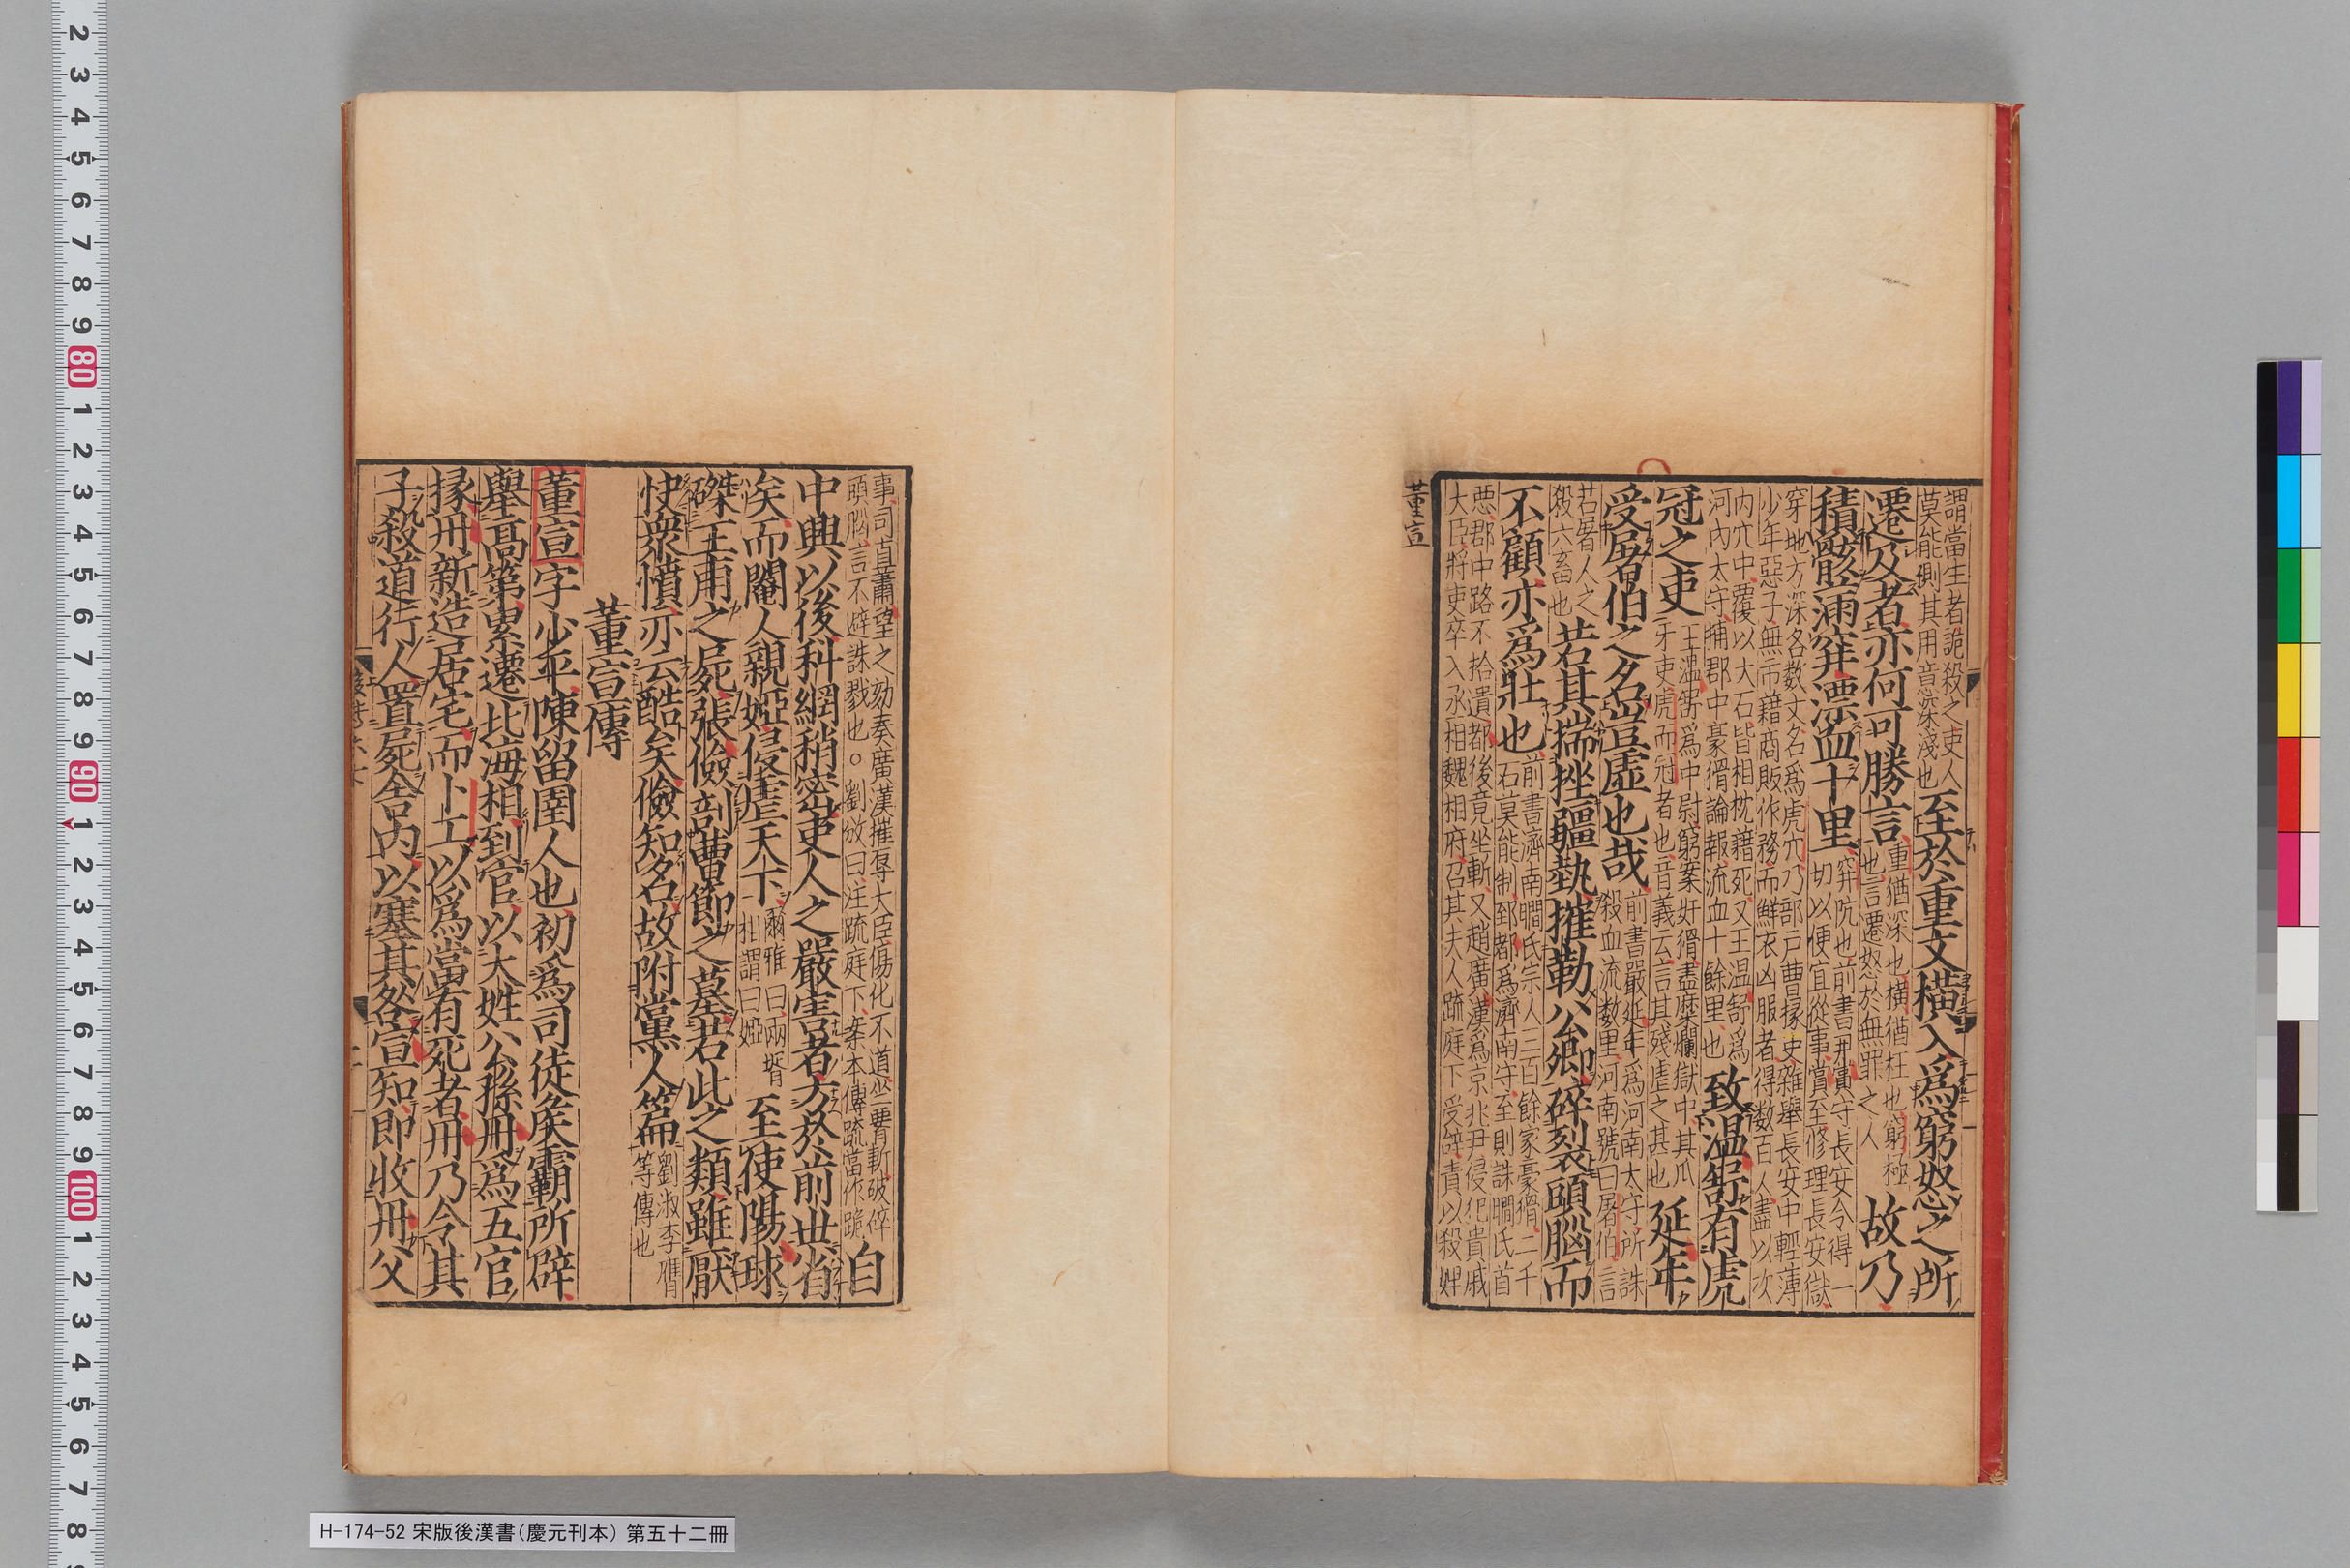 謂當生者詭殺之吏人
莫能測其用意深淺也
至於重文橫入爲窮怒之所
遷及者亦何可勝言
重猶深也橫猶枉也窮極
也言遷怒於無罪之人
故乃
積骸滿穽漂血十里
穽阬也前書尹賞守長安令得一
切以便宜從事賞至修理長安獄
穿地方深各數丈名爲虎穴乃部戶曹掾史雜舉長安中輕薄
少年惡子無市籍商販作務而鮮衣凶服者得數百人盡以次
內穴中覆以大石皆相枕藉死又王温舒爲
河內太守捕郡中豪猾論報流血十餘里也
致温舒有虎
冠之吏
王温舒爲中尉窮案奸猾盡糜爛獄中其爪
牙吏虎而冠者也音義云言其殘虐之甚也
延年
受屠伯之名豈虛也哉
前書嚴延年爲河南太守所誅
殺血流數里河南號曰屠伯言
若屠人之
殺六畜也
若其揣挫彊埶摧勒公卿碎裂頭腦而
不顧亦爲壯也
前書濟南瞯氏宗人三百餘家豪猾二千
石莫能制郅都爲濟南守至則誅瞯氏首
惡郡中路不拾遺都後竟坐斬又趙廣漢爲京兆尹侵犯貴戚
大臣將吏卒入丞相魏相府召其夫人跪庭下受辭責以殺婢
董宣
事司直蕭望之劾奏廣漢摧辱大臣傷化不道坐要斬破碎
頭腦言不避誅戮也○劉攽曰注疏庭下案本傳疏當作跪
自
中興以後科網稍密吏人之嚴害者方於前世省
矣而閹人親婭侵虐天下
爾雅曰兩婿
相謂曰婭
至使陽球
磔王甫之屍張儉剖曹節之墓若此之類雖厭
快衆憤亦云酷矣儉知名故附黨人篇
劉淑李膺
等傳也
董宣傳
董宣字少平陳留圉人也初爲司徒矦霸所辟
舉高第累遷北海相到官以大姓公孫丹爲五官
掾丹新造居宅而卜工以爲當有死者丹乃令其
子殺道行人置屍舍內以塞其咎宣知即收丹父
H-174-52 宋版後漢書(慶元刊本) 第五十二冊